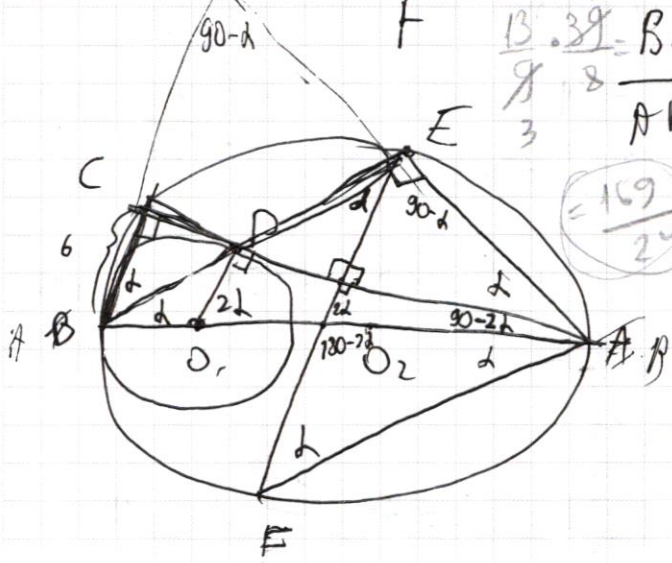 90-α
F
13/9 · 39/8 = B
3
A
= 169/2
E
C
D
α
90-α
6
α
α
2α
2α
90-2α
α
A B
O₁
180-2α
O₂
α
A B
α
E